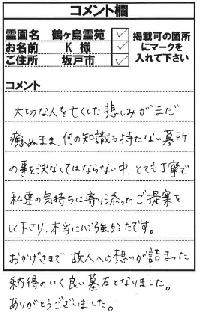 コメント欄
霊園名 鶴ヶ島霊苑 ✓
お名前 K 様 ✓
ご住所 坂戸市 ✓
掲載可の箇所
にマークを
入れて下さい
コメント
大切な人を亡くした悲しみがまだ
癒えぬまま、何の知識も持たない墓石
の事を決めなくてはならない中 とても丁寧で
私達の気持ちに寄り添ったご提案を
して下さり、本当に心強かったです。
おかげさまで 故人への想いが詰まった
納得のいく良い墓石となりました。
ありがとうございました。